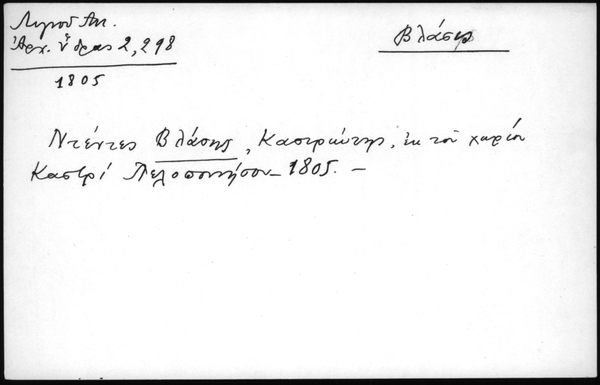 Λιγνοῦ Ἀν.
Ἀρχ. Ὕδρας 2, 298
1805
Βλάσης
Ντέντες Βλάσης, Καστριώτης, ἐκ τοῦ χωρίου
Καστρί Πελοποννήσου – 1805. –